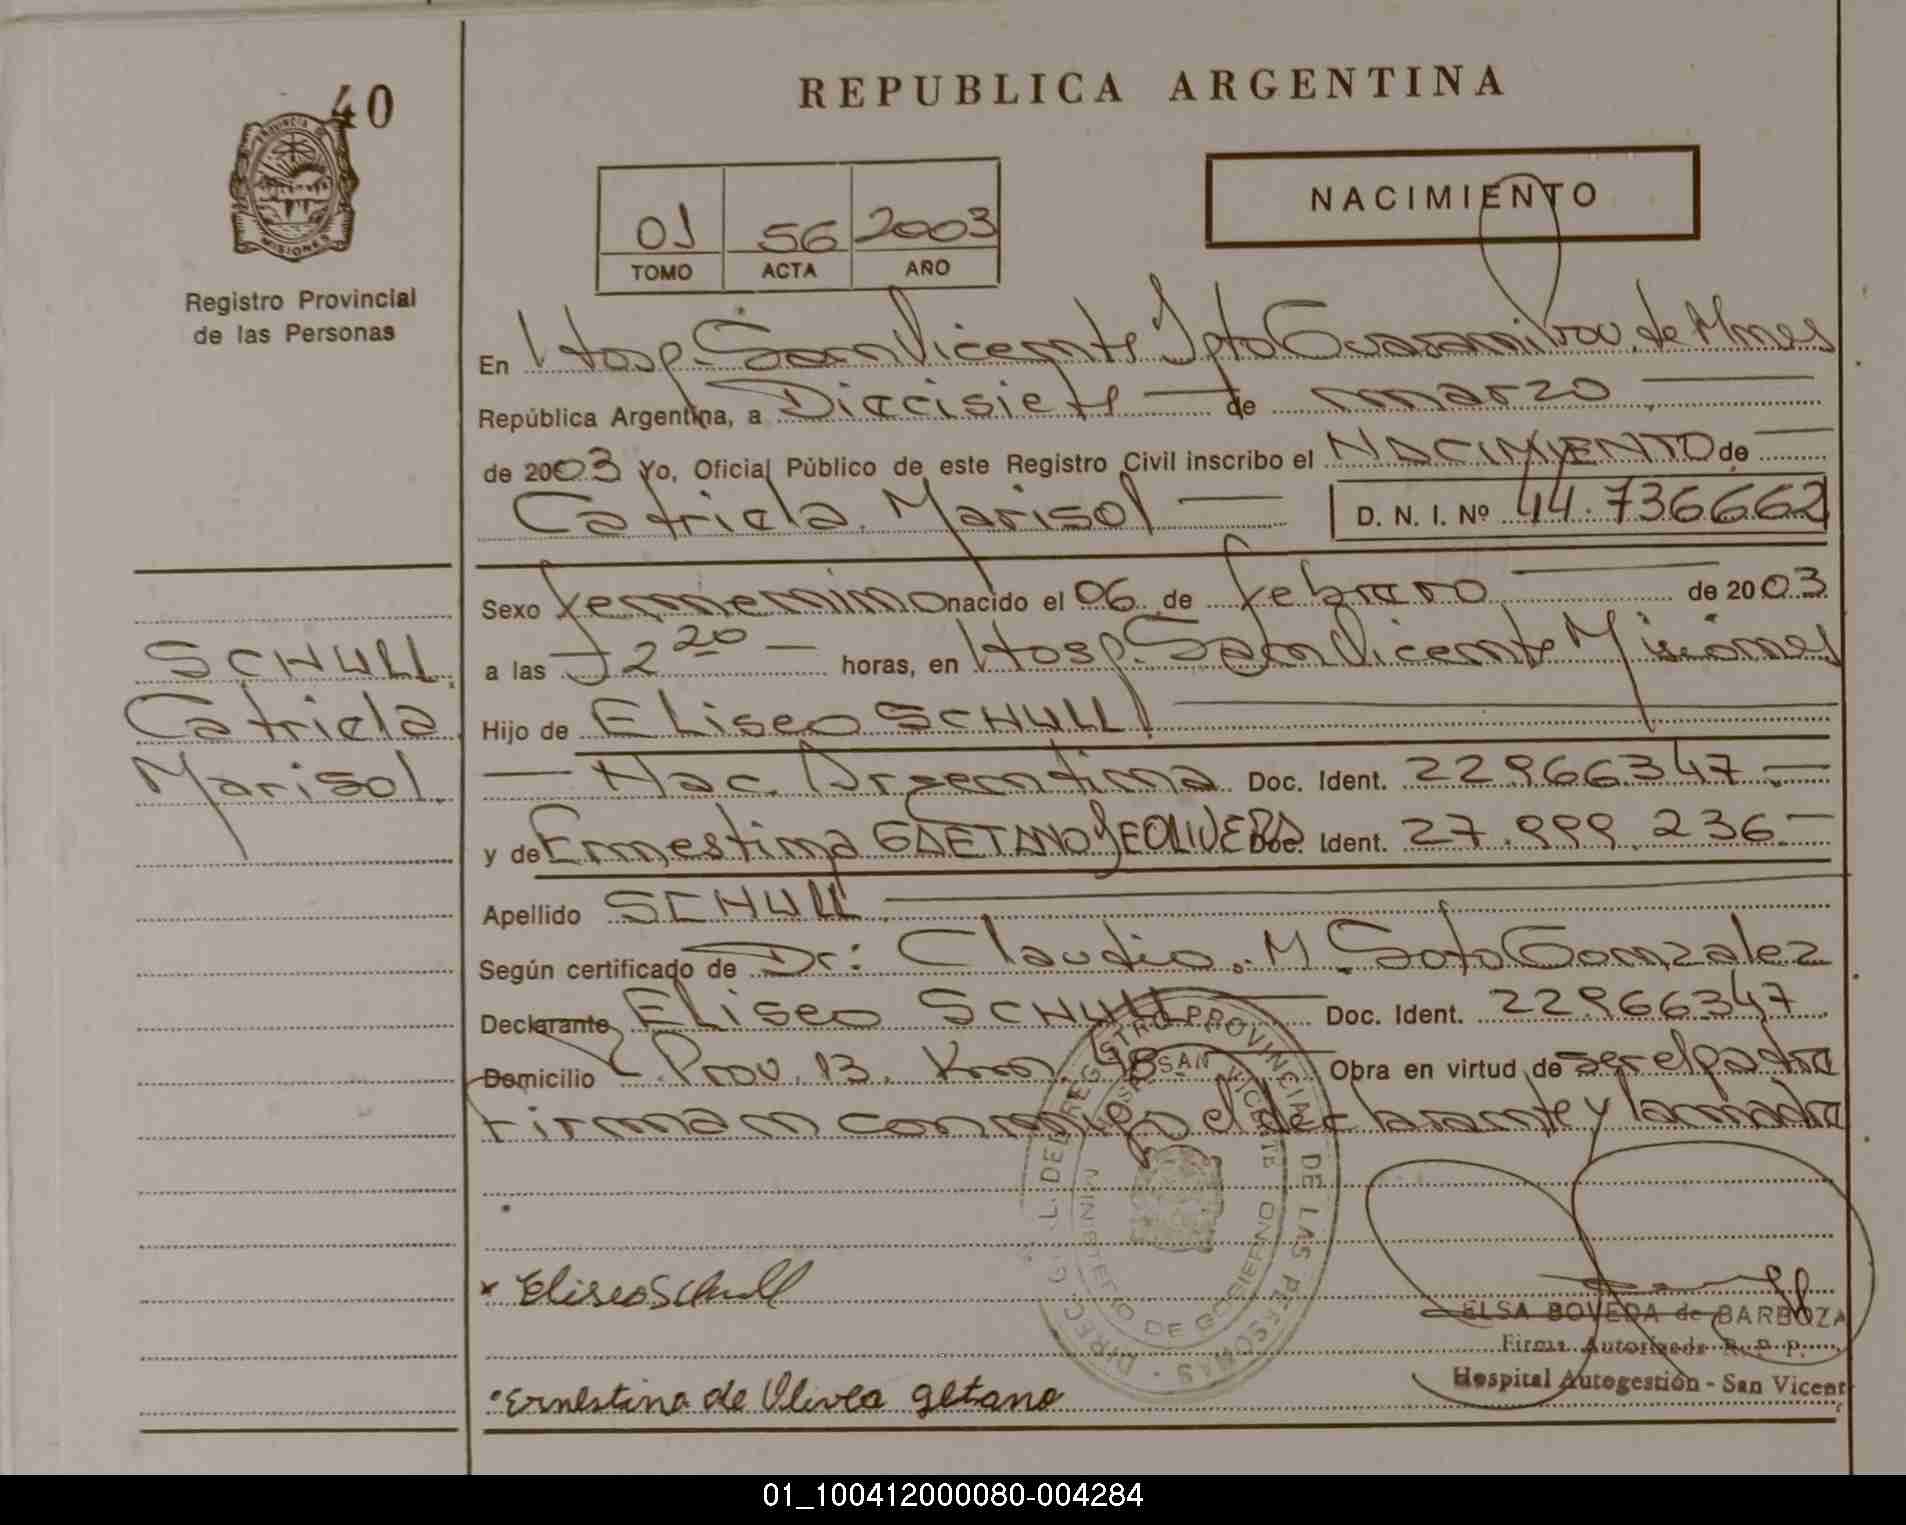 40
PROVINCIA DE
MISIONES
Registro Provincial
de las Personas
REPUBLICA ARGENTINA
NACIMIENTO
01 56 2003
TOMO ACTA AÑO
En Hosp. San Vicente Dpto Guarani Prov. de Mnes
República Argentina, a Diecisiete de marzo
de 2003 Yo, Oficial Público de este Registro Civil inscribo el NACIMIENTO de
Catriela Marisol D. N. I. Nº 44.736662
Sexo femenino nacido el 06 de febrero de 2003
a las 12 20 horas, en Hosp. San Vicente Misiones
Hijo de Eliseo SCHULL
Nac. Argentina Doc. Ident. 22966347
y de Ernestina GAETANO DE OLIVERA Doc. Ident. 27.999.236
Apellido SCHULL
Según certificado de Dr: Claudio. M. Soto Gonzalez
Declarante Eliseo SCHULL Doc. Ident. 22966347
Domicilio Prov. 13. Km 48 Obra en virtud de ser el padre
Firman conmigo el declarante y la madre
SCHULL
Catriela
Marisol
DIREC. GRAL. DEL REGISTRO PROVINCIAL DE LAS PERSONAS
SAN VICENTE
MINISTERIO DE GOBIERNO
x Eliseo Schull
ELSA BOVEDA de BARBOZA
Firma Autorizada R. P. P.
Hospital Autogestión - San Vicent
Ernestina de Olivea getano
01_100412000080-004284